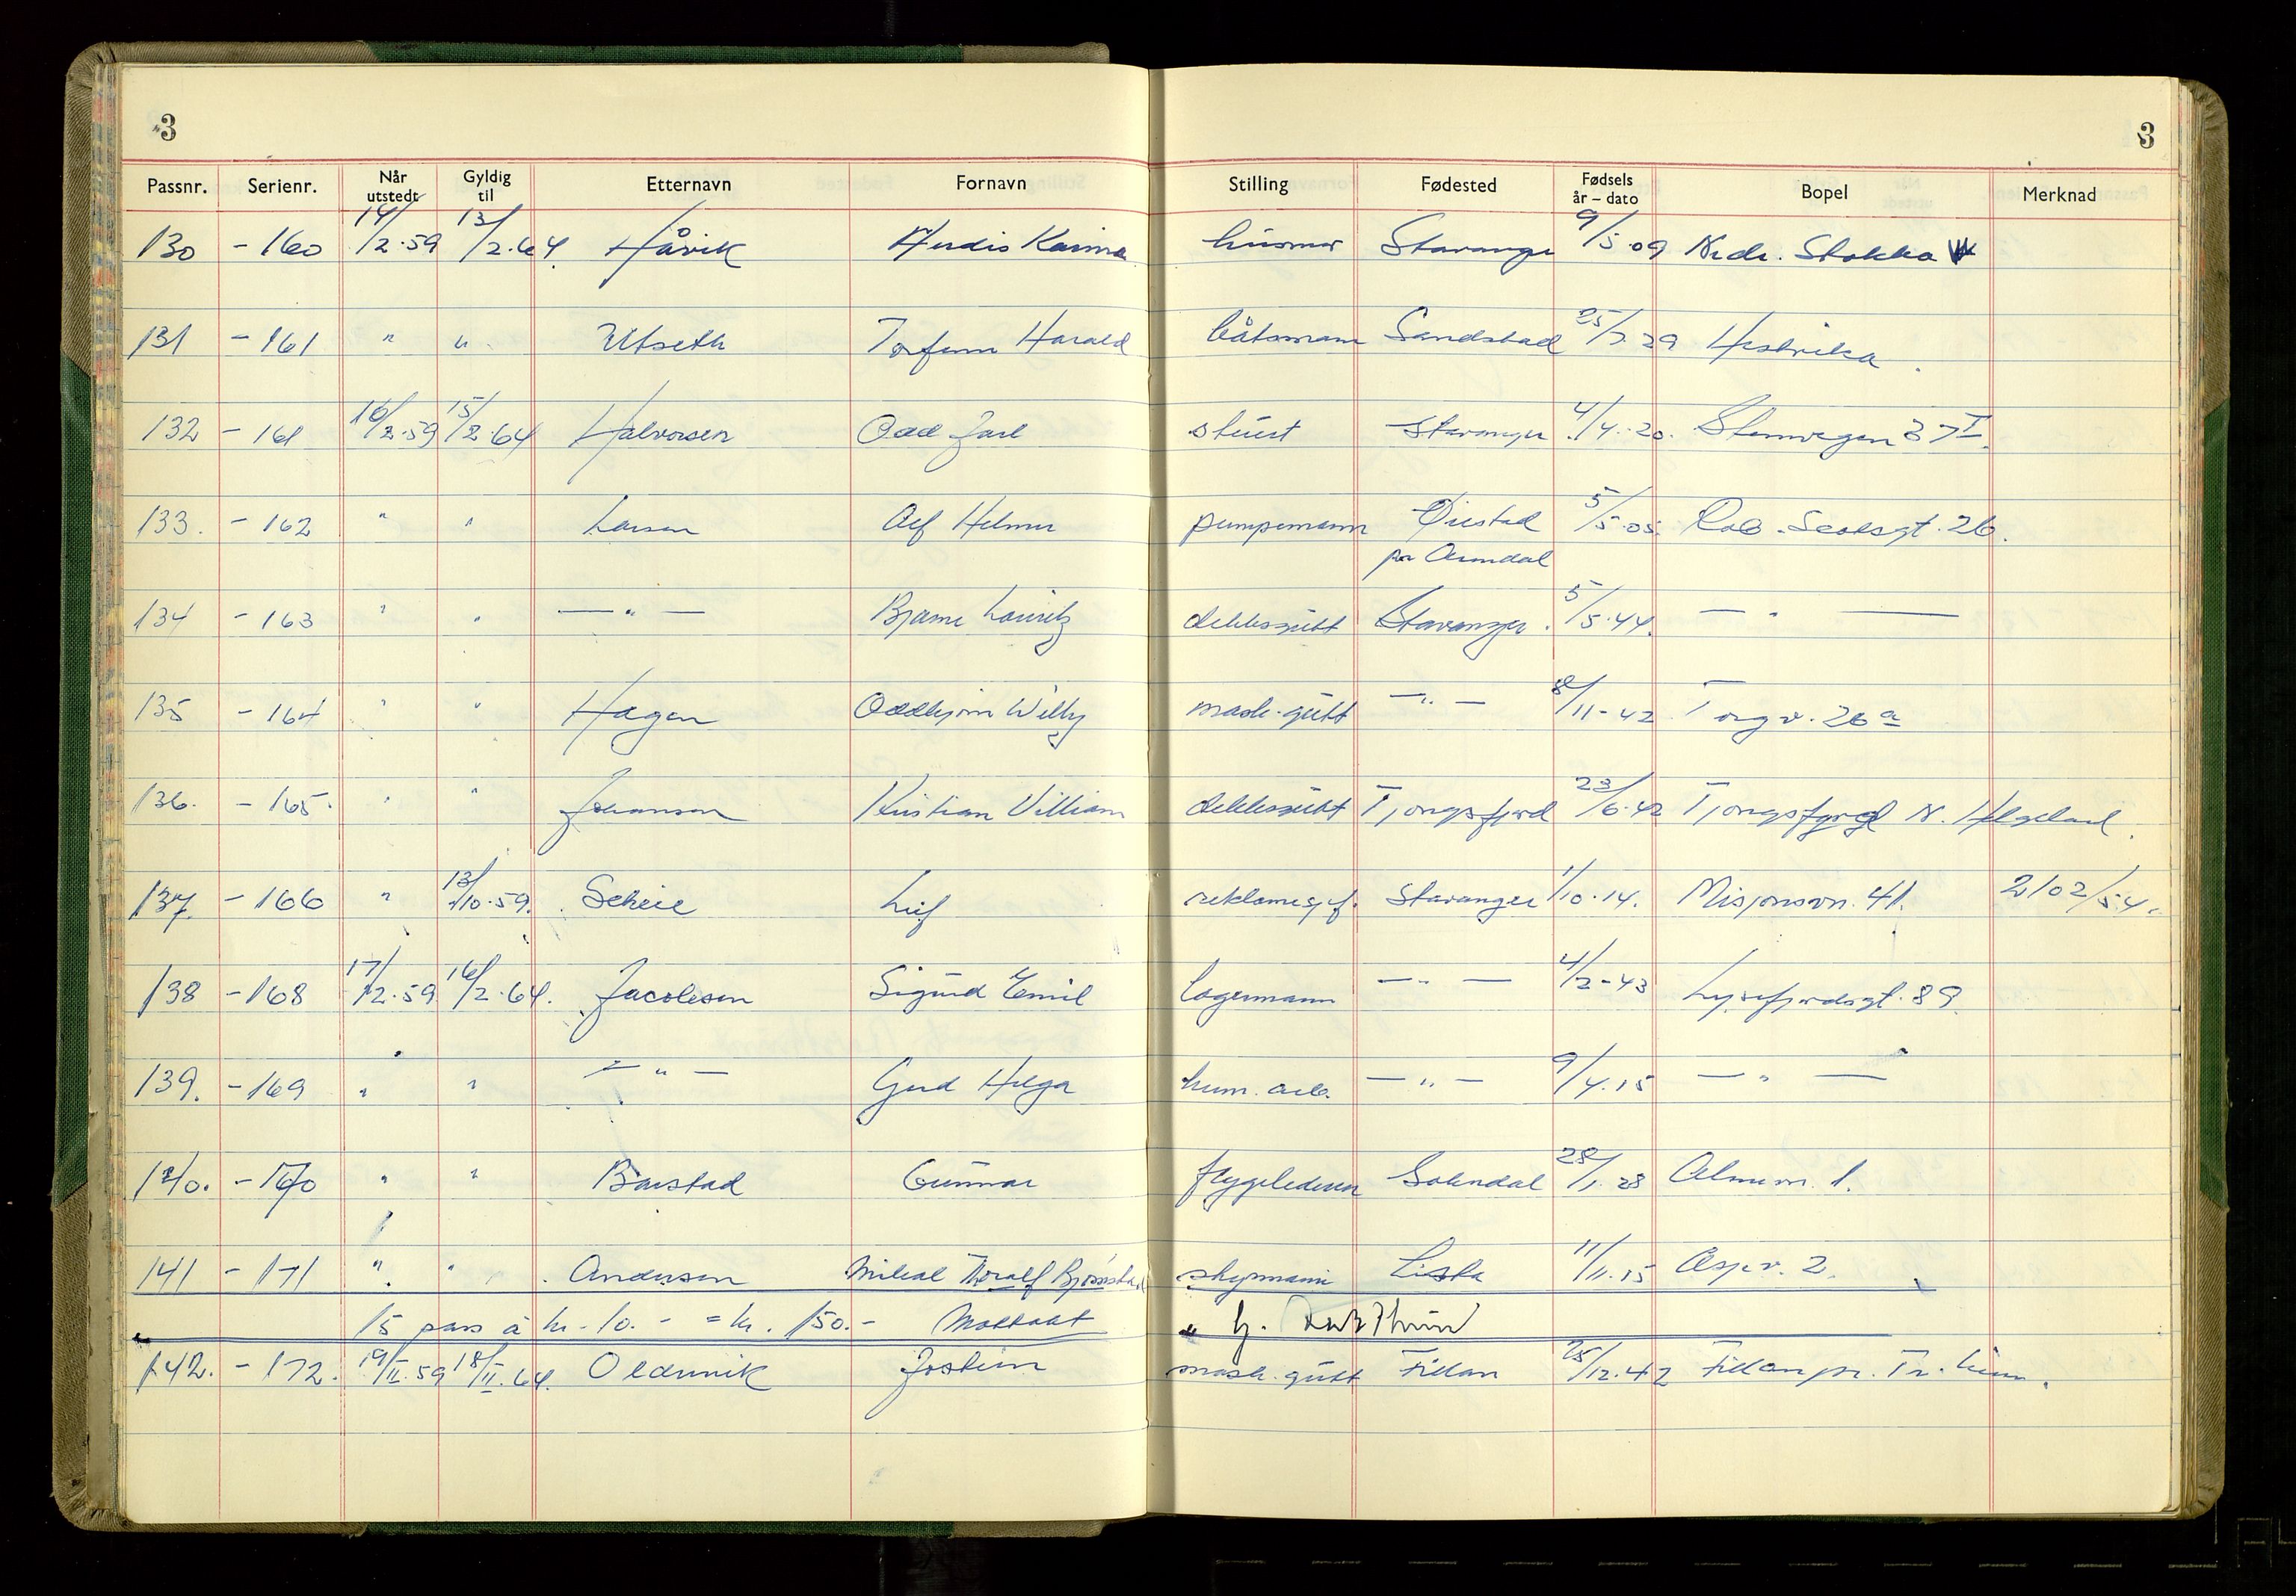 3 3
Passnr. Serienr. Når utstedt Gyldig til Etternavn Fornavn Stilling Fødested Fødsels år – dato Bopel Merknad
130 - 160 14/2.59 13/2.64 Håvik Herdis Karina husmor Stavanger 9/5.09 Nedr. Stokka
131 - 161 " " Utseth Torfinn Harald båtsmann Sandstad 25/7.29 Hestvika
132 - 161 16/2.59 15/2.64 Halvorsen Odd Jarl stuert Stavanger 4/4.20. 37 I
133. - 162 " " Larsen Alf Helmer pumpemann Øiestad pr Arendal 5/5.05. Rob. Scotsgt. 26.
134 - 163 " " — " — Bjarne Lauritz dekksgutt Stavanger. 5/5.44. — " —
135 - 164 " " Hagen Oddbjørn Willy mask. gutt — " — 8/11-42 Torgv. 26 a
136. - 165. " " Johansen Kristian Villiam dekksgutt Tjongsfjord 23/6.42 Tjongsfjord N. Helgeland.
137. - 166 " 13/10.59. Scheie Leif reklamesjef. Stavanger 1/10.14. Misjonsvn. 41. 2102/54.
138 - 168 17/2.59 16/2.64. Jacobsen Sigurd Emil lagermann — " — 4/2-43 Lysefjordsgt. 89.
139. - 169 " " — " — Gerd Helga hum. arb. — " — 9/4.15 — " —
140. - 170 " " Barstad Gunnar flygeleder Sokndal 28/1.28 1.
141 - 171 " " Andersen Mikal Thoralf styrmann Lista 11/11.15 Ospv. 2.
15 pass à kr. 10. - = kr. 150.- Mottatt
142. - 172. 19/II.59 18/II.64. Oldervik Jostein mask. gutt Fillan 25/12.42 Fillan pr. Tr. heim.